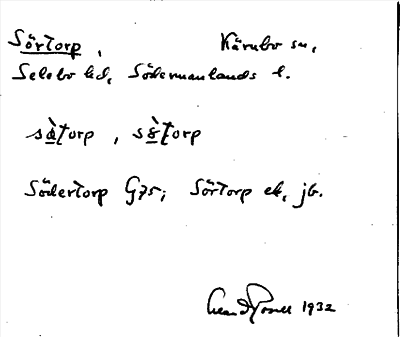 Sörtorp, Kärnbo sn,
Selebo hd, Södermanlands l.
sàtorp, sø̀torp
Södertorp G75; Sörtorp ek, jb.
1932